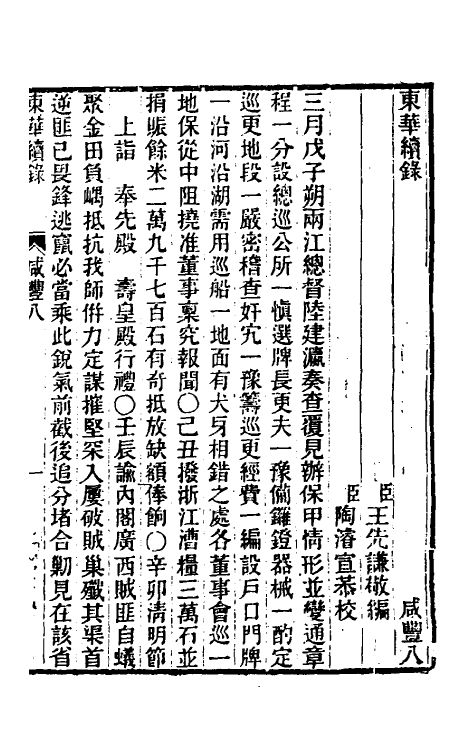 東華續錄　咸豐八
臣王先謙敬編
臣陶濬宣恭校
三月戊子朔兩江總督陸建瀛奏查覆見辦保甲情形並變通章
程一分設總巡公所一愼選牌長更夫一豫備鑼鐙器械一酌定
巡更地段一嚴密稽查奸宄一豫籌巡更經費一編設戶口門牌
一沿河沿湖需用巡船一地面有犬牙相錯之處各董事會巡一
地保從中阻撓准董事稟究報聞○己丑撥浙江漕糧三萬石並
捐賑餘米二萬九千七百石有奇抵放缺額俸餉○辛卯淸明節
上詣　奉先殿　壽皇殿行禮○壬辰諭內閣廣西賊匪自蟻
聚金田負嵎抵抗我師倂力定謀摧堅深入屢破賊巢殲其渠首
逆匪已畏鋒逃竄必當乘此銳氣前截後追分堵合勦見在該省
東華續錄　咸豐八　一